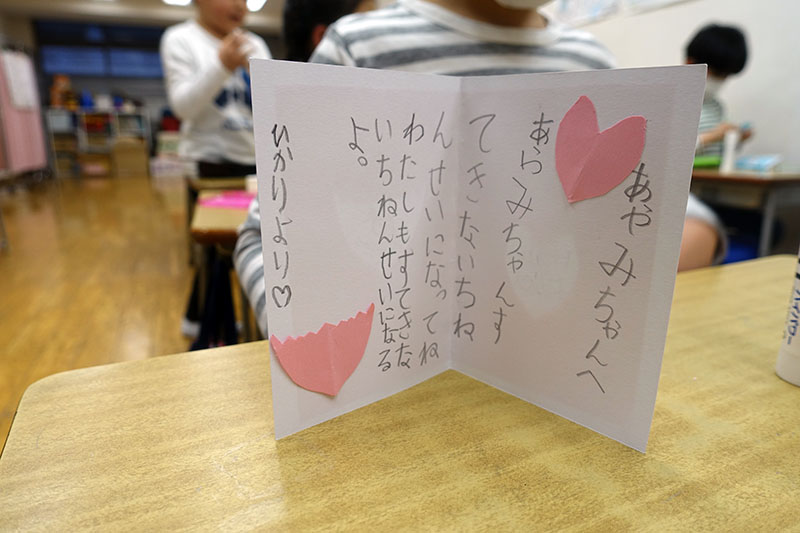 あやみちゃんへ
あやみちゃんす
てきないちね
んせいになってね
わたしもすてきな
いちねんせいになる
よ。
ひかりより♡